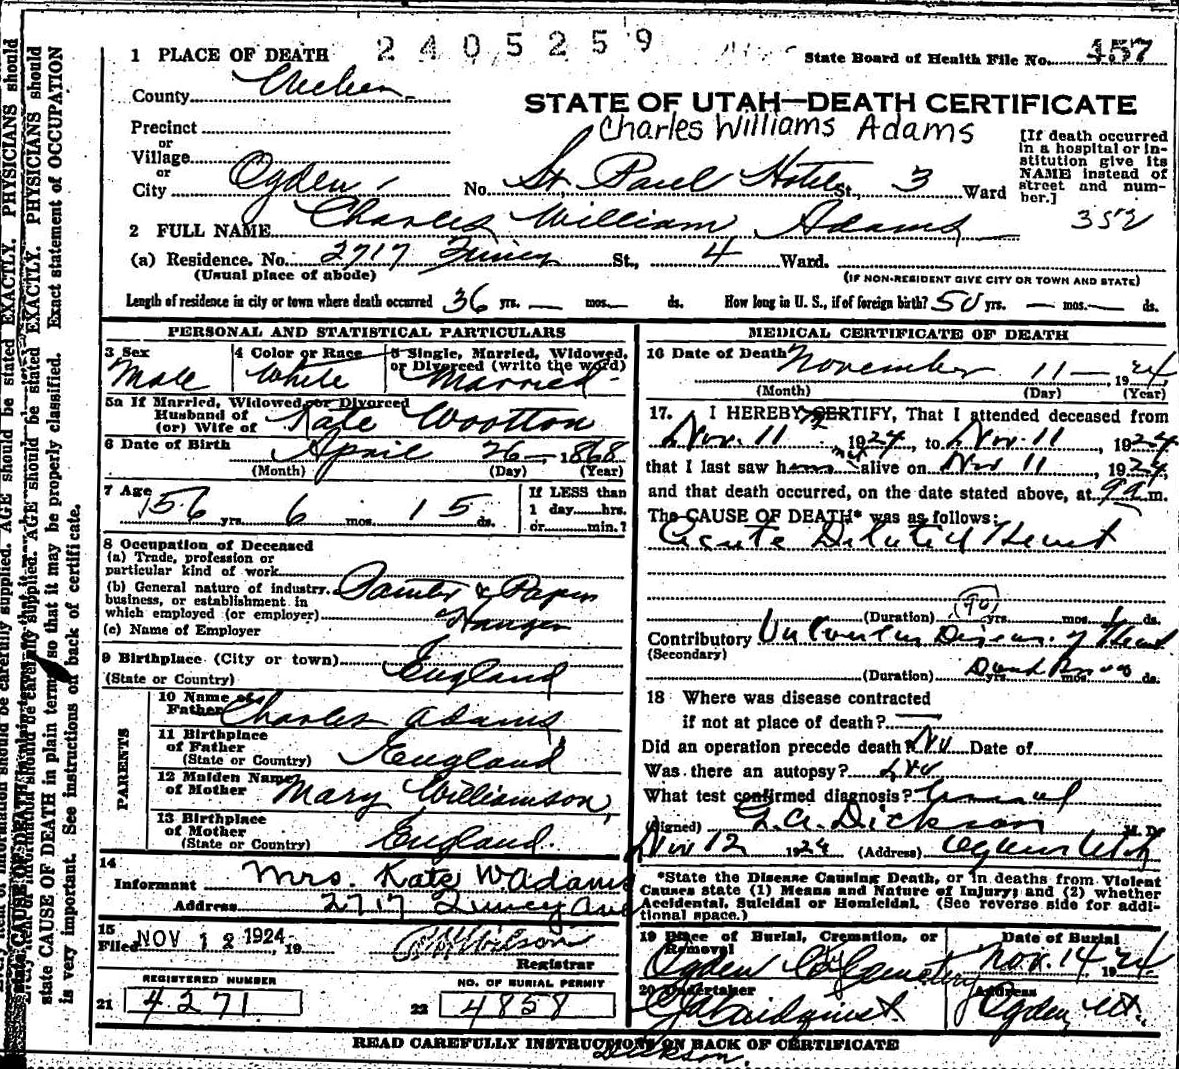 2405259
1 PLACE OF DEATH
State Board of Health File No. 457
County
STATE OF UTAH—DEATH CERTIFICATE
Charles Williams Adams
Precinct
or
Village
or
City Ogden No. St. Paul Hotel St, 3 Ward
[If death occurred
in a hospital or in-
stitution give its
NAME instead of
street and num-
ber.]
352
2 FULL NAME Charles William Adams
(a) Residence. No. 2717 St., 4 Ward.
(Usual place of abode)
(IF NON-RESIDENT GIVE CITY OR TOWN AND STATE)
Length of residence in city or town where death occurred 36 yrs. — mos. — ds. How long in U. S., if of foreign birth? 50 yrs. — mos. — ds.
PERSONAL AND STATISTICAL PARTICULARS
3 Sex
Male
4 Color or Race
White
5 Single, Married, Widowed,
or Divorced (write the word)
Married
5a If Married, Widowed or Divorced
Husband of
(or) Wife of Kate Wootton
6 Date of Birth April 26 — 1868
(Month) (Day) (Year)
7 Age
56 yrs. 6 mos. 15 ds.
If LESS than
1 day hrs.
or min.?
8 Occupation of Deceased
(a) Trade, profession or
particular kind of work
(b) General nature of industry,
business, or establishment in
which employed (or employer)
Painter & Paper
Hanger
(c) Name of Employer
9 Birthplace (City or town)
(State or Country) England
PARENTS
10 Name of
Father Charles Adams
11 Birthplace
of Father
(State or Country) England
12 Maiden Name
of Mother Mary Williamson,
13 Birthplace
of Mother
(State or Country) England.
14
Informant Mrs. Kate W Adams
Address 2717 Quincy Ave
15
Filed NOV 12 1924, 19 Wilson
Registrar
REGISTERED NUMBER
21 4271
NO. OF BURIAL PERMIT
22 4858
MEDICAL CERTIFICATE OF DEATH
16 Date of Death November 11 — , 1924
(Month) (Day) (Year)
17. I HEREBY CERTIFY, That I attended deceased from
Nov. 11 1924, to Nov. 11, 1924
that I last saw him not alive on Nov 11, 1924,
and that death occurred, on the date stated above, at 9 a m.
The CAUSE OF DEATH* was as follows:
Acute Heart
(90)
(Duration) yrs. mos. ds.
Contributory Disease of Heart
(Secondary)
(Duration) yrs. mos. ds.
18 Where was disease contracted
if not at place of death? —
Did an operation precede death? No Date of
Was there an autopsy?
What test confirmed diagnosis?
(Signed) Dickson M. D.
Nov 12 1924 (Address) Ogden Utah
*State the Disease Causing Death, or in deaths from Violent
Causes state (1) Means and Nature of Injury; and (2) whether
Accidental, Suicidal or Homicidal. (See reverse side for addi-
tional space.)
19 Place of Burial, Cremation, or
Removal
Ogden City Cemetery
Date of Burial
Nov. 14 1924
20 Undertaker
Address
Ogden, Ut.
READ CAREFULLY INSTRUCTIONS ON BACK OF CERTIFICATE
Dickson.
state CAUSE OF DEATH in plain terms so that it may be properly classified. Exact statement of OCCUPATION
is very important. See instructions on back of certificate.